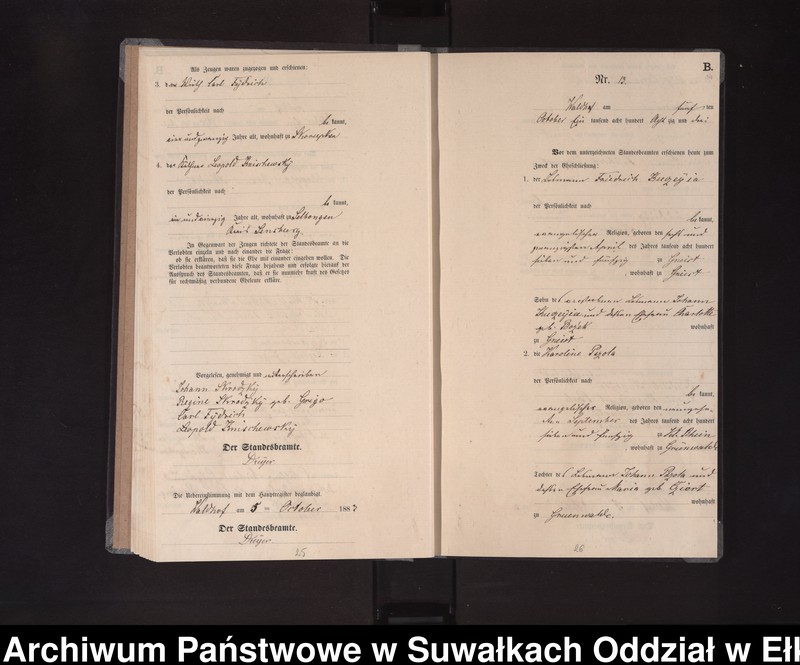 Als Zeugen waren zugezogen und erschienen:
3. der Wirth Carl Tydrich
der Persönlichkeit nach
be kannt,
ein und zwanzig Jahre alt, wohnhaft zu Skorupken
4. der Leopold Knischewsky
der Persönlichkeit nach
be kannt,
Jahre alt, wohnhaft zu
Kreis Sensburg.
In Gegenwart der Zeugen richtete der Standesbeamte an die
Verlobten einzeln und nach einander die Frage:
ob sie erklären, daß sie die Ehe mit einander eingehen wollen. Die
Verlobten beantworteten diese Frage bejahend und erfolgte hierauf der
Ausspruch des Standesbeamten, daß er sie nunmehr kraft des Gesetzes
für rechtmäßig verbundene Eheleute erkläre.
Vorgelesen, genehmigt und unterschrieben
Johann Skrodzky
Regine Skrodzky geb. Grigo
Carl Tydrich
Leopold Knischewsky
Der Standesbeamte.
Die Uebereinstimmung mit dem Hauptregister beglaubigt.
Waldhof am 5 ten October 1883
Der Standesbeamte.
25
B.
Nr. 13.
Waldhof am fünf ten
October Ein tausend acht hundert Acht zig und drei
Vor dem unterzeichneten Standesbeamten erschienen heute zum
Zweck der Eheschließung:
1. der Friedrich
der Persönlichkeit nach
be kannt,
evangelischer Religion, geboren den sechs und
zwanzigsten April des Jahres tausend acht hundert
sieben und fünfzig zu Gneist
, wohnhaft zu Gneist
Sohn des verstorbenen Johann
und dessen Ehefrau Charlotte
geb. wohnhaft
zu Gneist
2. die Karoline Pszola
der Persönlichkeit nach
be kannt,
evangelischer Religion, geboren den
ten September des Jahres tausend acht hundert
sieben und fünfzig zu Rhein
, wohnhaft zu Gruenwalde
Tochter des Johann Pszola und
dessen Ehefrau Maria geb.
wohnhaft
zu Gruenwalde.
26
Archiwum Państwowe w Suwałkach Oddział w Ełk